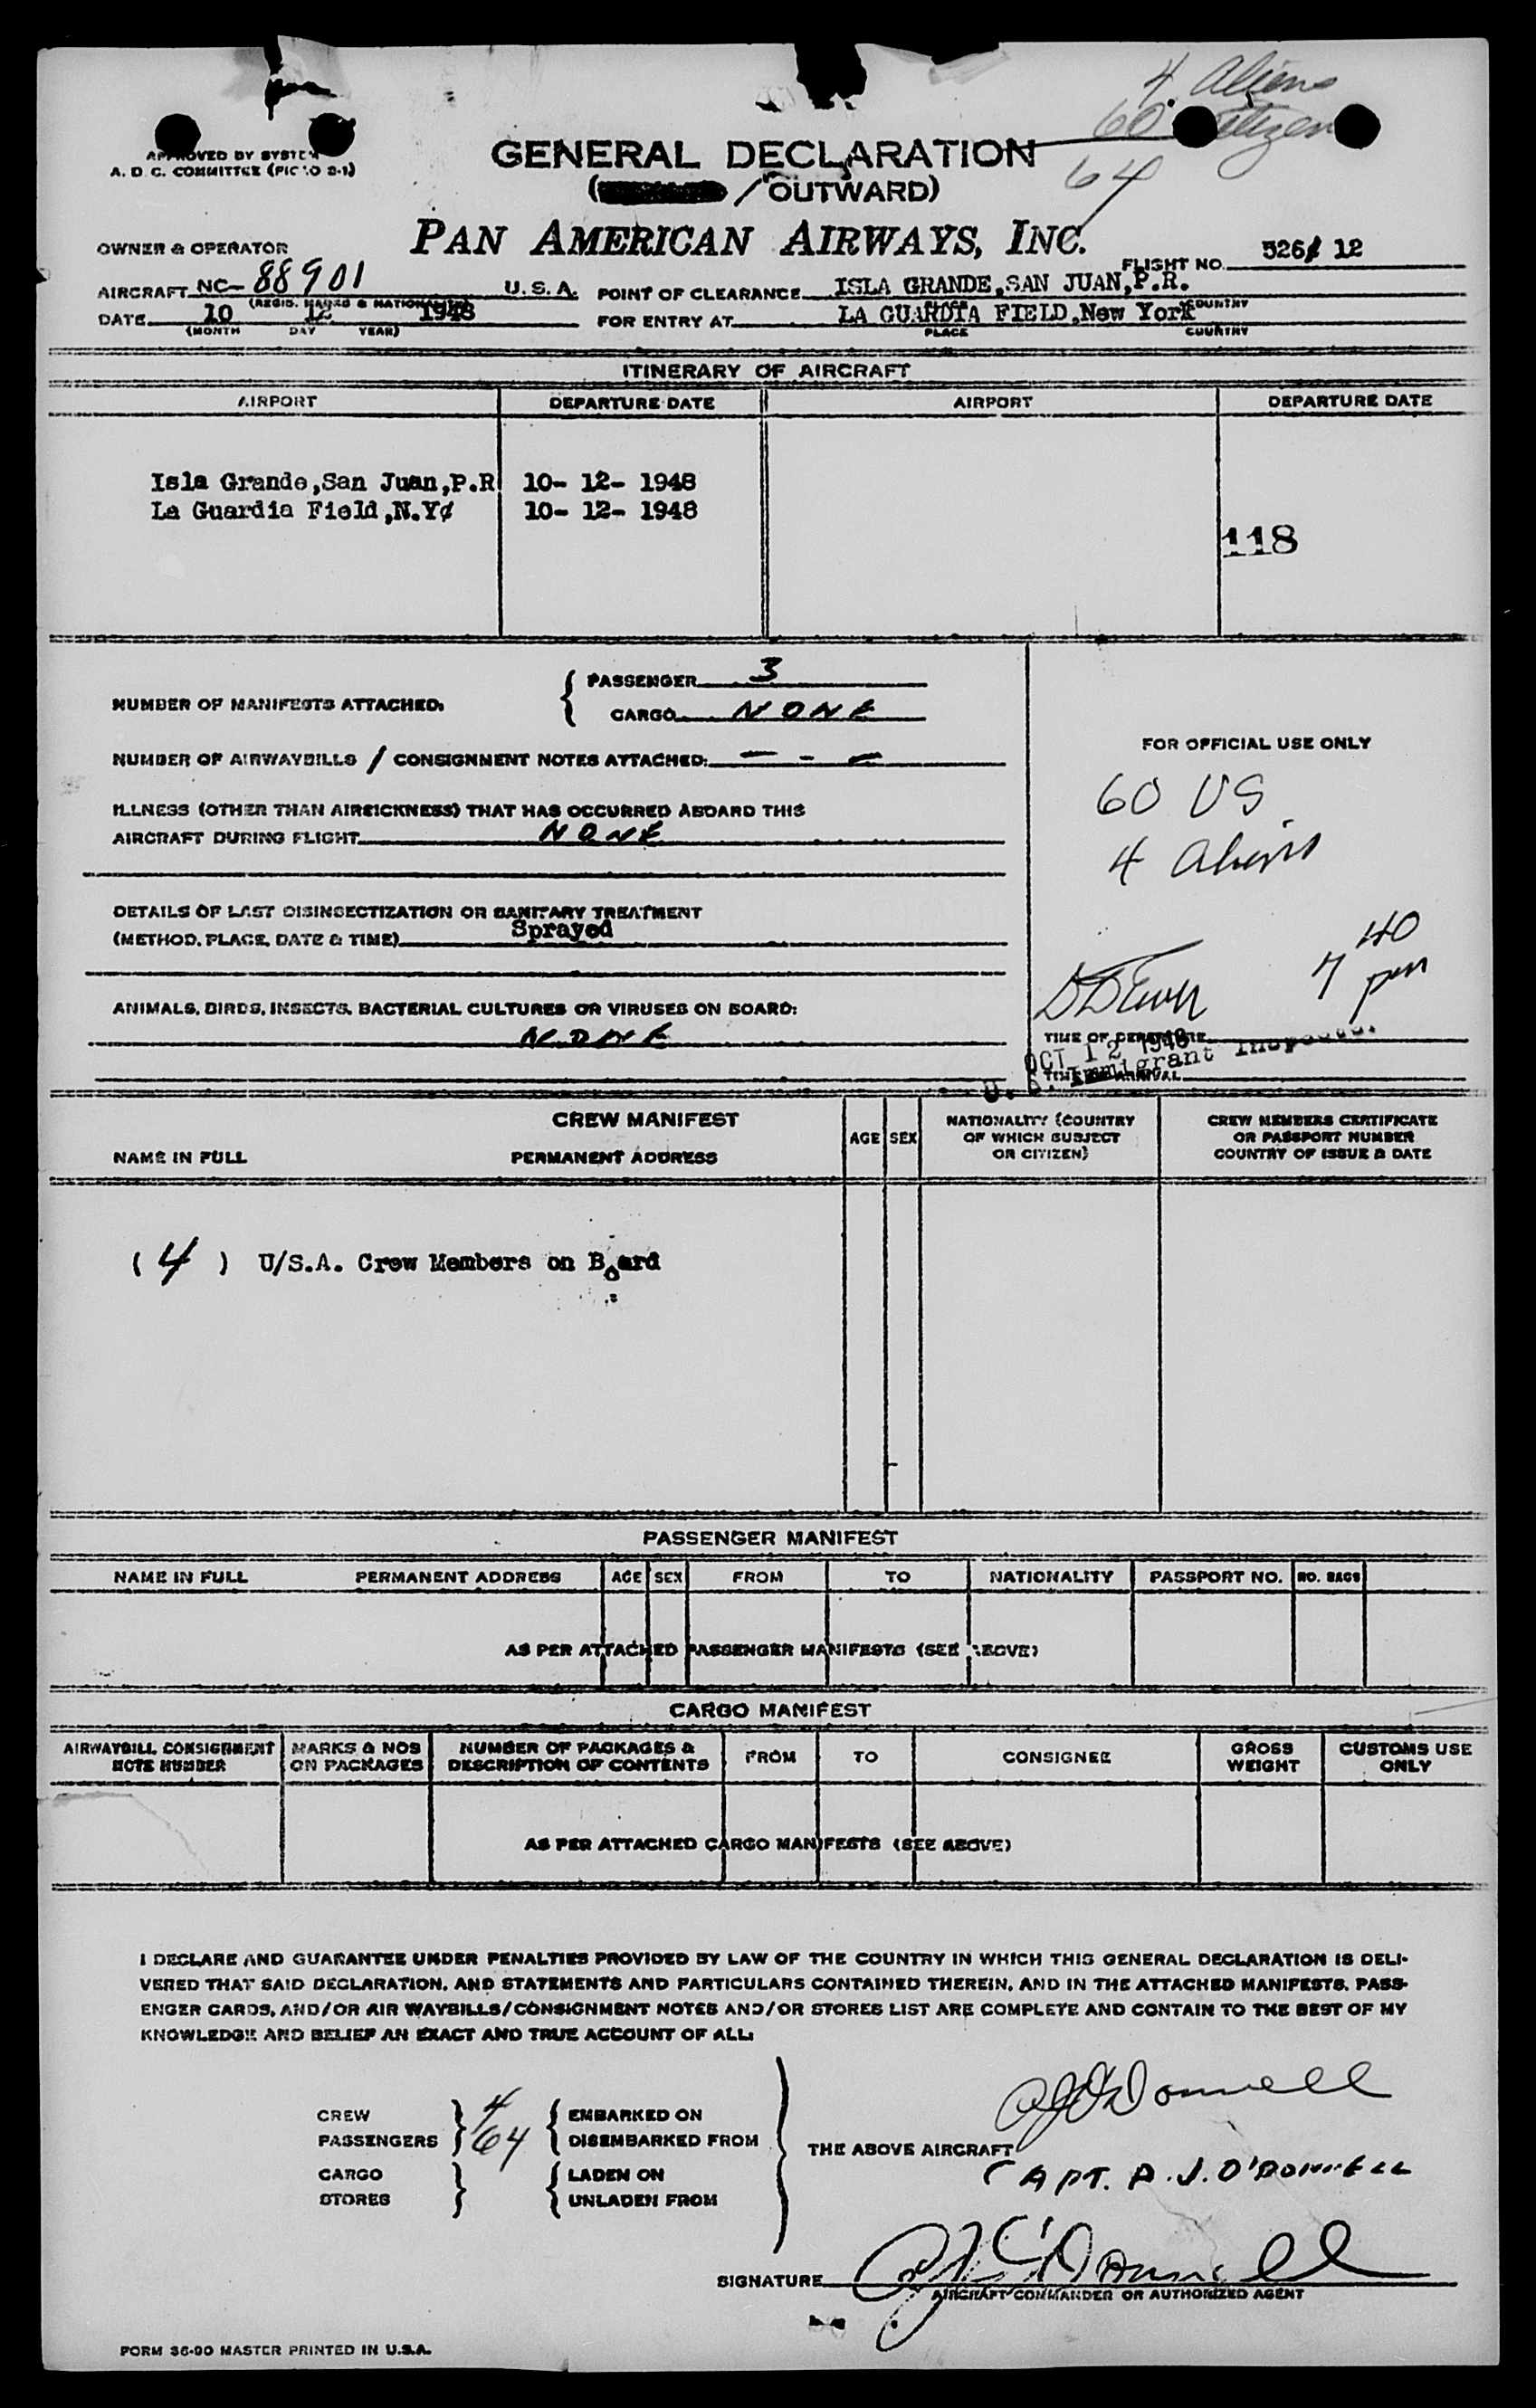 4 Aliens
60 Citizen
64
APPROVED BY SYSTEM
A. D. C. COMMITTEE (PICAO 2-1)
GENERAL DECLARATION
( / OUTWARD)
PAN AMERICAN AIRWAYS, INC.
OWNER & OPERATOR
FLIGHT NO. 526/ 12
AIRCRAFT NC- 88901 U.S.A. POINT OF CLEARANCE ISLA GRANDE,SAN JUAN,P.R.
(REGIS. MARKS & NATIONALITY) PLACE COUNTRY
DATE 10 12 1948 FOR ENTRY AT LA GUARDIA FIELD,New York
(MONTH DAY YEAR) PLACE COUNTRY
ITINERARY OF AIRCRAFT
AIRPORT DEPARTURE DATE AIRPORT DEPARTURE DATE
Isla Grande,San Juan,P.R 10- 12- 1948
La Guardia Field,N.Y¢ 10- 12- 1948
118
NUMBER OF MANIFESTS ATTACHED: { PASSENGER 3
CARGO NONE
NUMBER OF AIRWAYBILLS / CONSIGNMENT NOTES ATTACHED: — - —
FOR OFFICIAL USE ONLY
60 US
4 Aliens
ILLNESS (OTHER THAN AIRSICKNESS) THAT HAS OCCURRED ABOARD THIS
AIRCRAFT DURING FLIGHT NONE
DETAILS OF LAST DISINSECTIZATION OR SANITARY TREATMENT
(METHOD, PLACE, DATE & TIME) Sprayed
7 40 pm
ANIMALS, BIRDS, INSECTS, BACTERIAL CULTURES OR VIRUSES ON BOARD:
NONE
TIME OF DEPARTURE
OCT 12 1948
U. S. Immigrant Inspector
TIME OF ARRIVAL
CREW MANIFEST
NAME IN FULL PERMANENT ADDRESS AGE SEX NATIONALITY (COUNTRY OF WHICH SUBJECT OR CITIZEN) CREW MEMBERS CERTIFICATE OR PASSPORT NUMBER COUNTRY OF ISSUE & DATE
( 4 ) U/S.A. Crew Members on Board
PASSENGER MANIFEST
NAME IN FULL PERMANENT ADDRESS AGE SEX FROM TO NATIONALITY PASSPORT NO. NO. BAGS
AS PER ATTACHED PASSENGER MANIFESTS (SEE ABOVE)
CARGO MANIFEST
AIRWAYBILL CONSIGNMENT NOTE NUMBER MARKS & NOS ON PACKAGES NUMBER OF PACKAGES & DESCRIPTION OF CONTENTS FROM TO CONSIGNEE GROSS WEIGHT CUSTOMS USE ONLY
AS PER ATTACHED CARGO MANIFESTS (SEE ABOVE)
I DECLARE AND GUARANTEE UNDER PENALTIES PROVIDED BY LAW OF THE COUNTRY IN WHICH THIS GENERAL DECLARATION IS DELI-
VERED THAT SAID DECLARATION, AND STATEMENTS AND PARTICULARS CONTAINED THEREIN, AND IN THE ATTACHED MANIFESTS, PASS-
ENGER CARDS, AND/OR AIR WAYBILLS/CONSIGNMENT NOTES AND/OR STORES LIST ARE COMPLETE AND CONTAIN TO THE BEST OF MY
KNOWLEDGE AND BELIEF AN EXACT AND TRUE ACCOUNT OF ALL:
CREW } 4 { EMBARKED ON
PASSENGERS } 64 { DISEMBARKED FROM
THE ABOVE AIRCRAFT
CARGO } { LADEN ON
STORES } { UNLADEN FROM
CAPT. P. J. O'DONNELL
SIGNATURE
AIRCRAFT COMMANDER OR AUTHORIZED AGENT
FORM 36-90 MASTER PRINTED IN U.S.A.